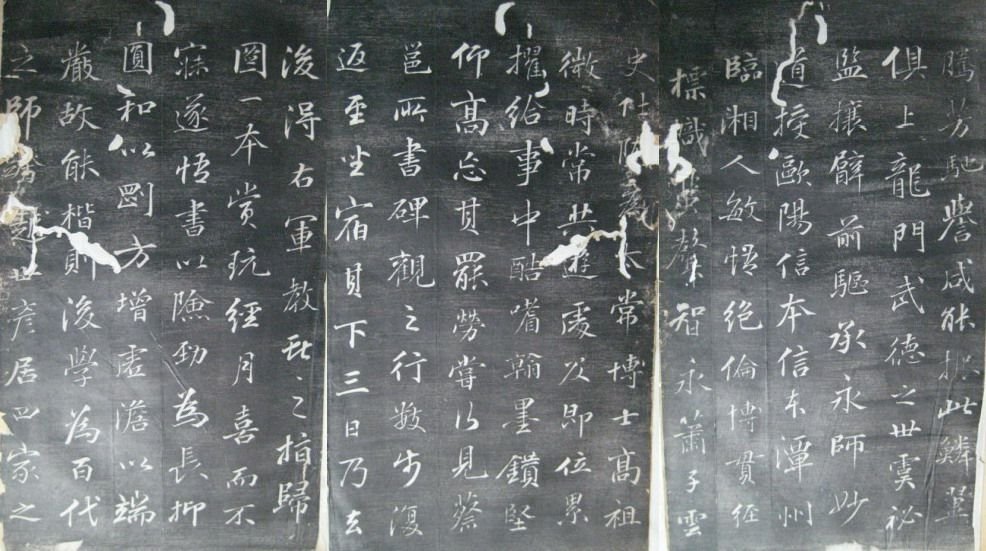 騰芳馳譽咸能振此鱗翼
俱上龍門武德之世虞祕
監攘臂前驅承永師妙
道授歐陽信本信本潭州
臨湘人敏悟絕倫博貫經
標幟蜚聲智永蕭子雲
史仕隋為太常博士高祖
微時常共遊處及即位累
擢給事中酷嗜翰墨鑽堅
仰高忘其罷勞嘗行見蔡
邕所書碑觀之行數步復
返至坐宿其下三日乃去
後得右軍教獻之指歸
圖一本賞玩經月喜而不
寐遂悟書以險勁為長抑
圓和以剛方增虛澹以端
嚴故能楷則後學為百代
之師世彥居四家之